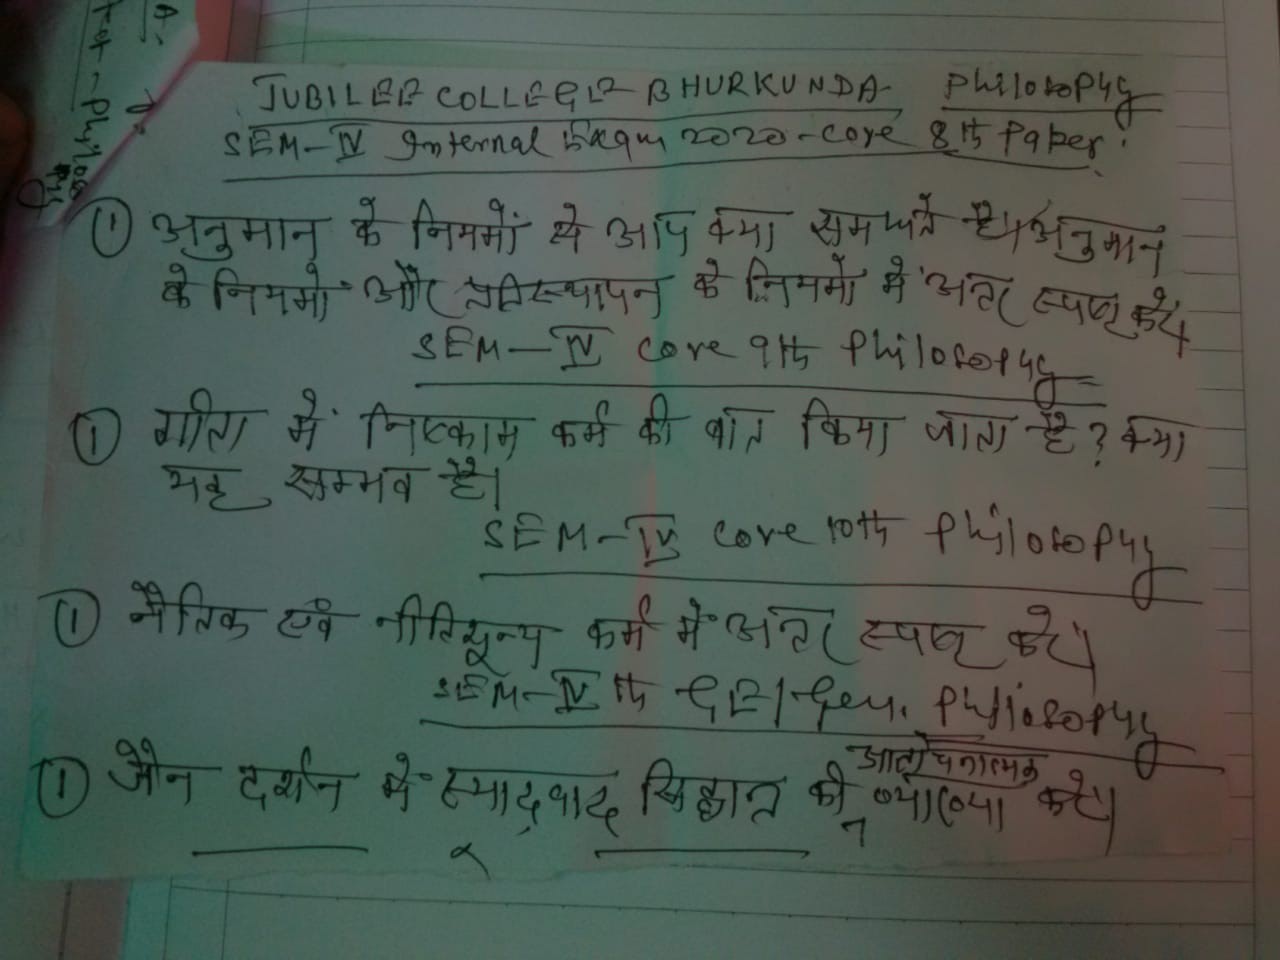 A:
Philosophy
JUBILEE COLLEGE BHURKUNDA Philosophy
SEM-IV Internal Exam 2020-Core 8th Paper.
① अनुमान के नियमों से आप क्या समझते है। अनुमान
के नियमों और प्रतिस्थापन के नियमों में अन्तर स्पष्ट करें।
SEM-IV Core 9th Philosophy
① गीता में निष्काम कर्म की बात किया जाता है? क्या
यह सम्भव है।
SEM-IV Core 10th Philosophy
① नैतिक एवं नीतिशून्य कर्म में अन्तर स्पष्ट करें।
SEM-IVth GE/Gen. Philosophy
आलोचनात्मक
① जैन दर्शन में स्यादवाद सिद्धान्त की व्याख्या करें।